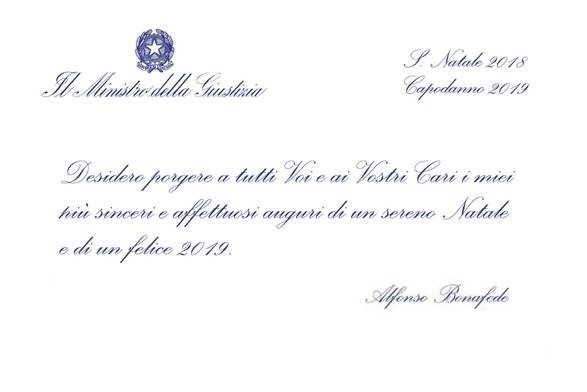 Il Ministro della Giustizia
S. Natale 2018
Capodanno 2019
Desidero porgere a tutti Voi e ai Vostri Cari i miei
più sinceri e affettuosi auguri di un sereno Natale
e di un felice 2019.
Alfonso Bonafede